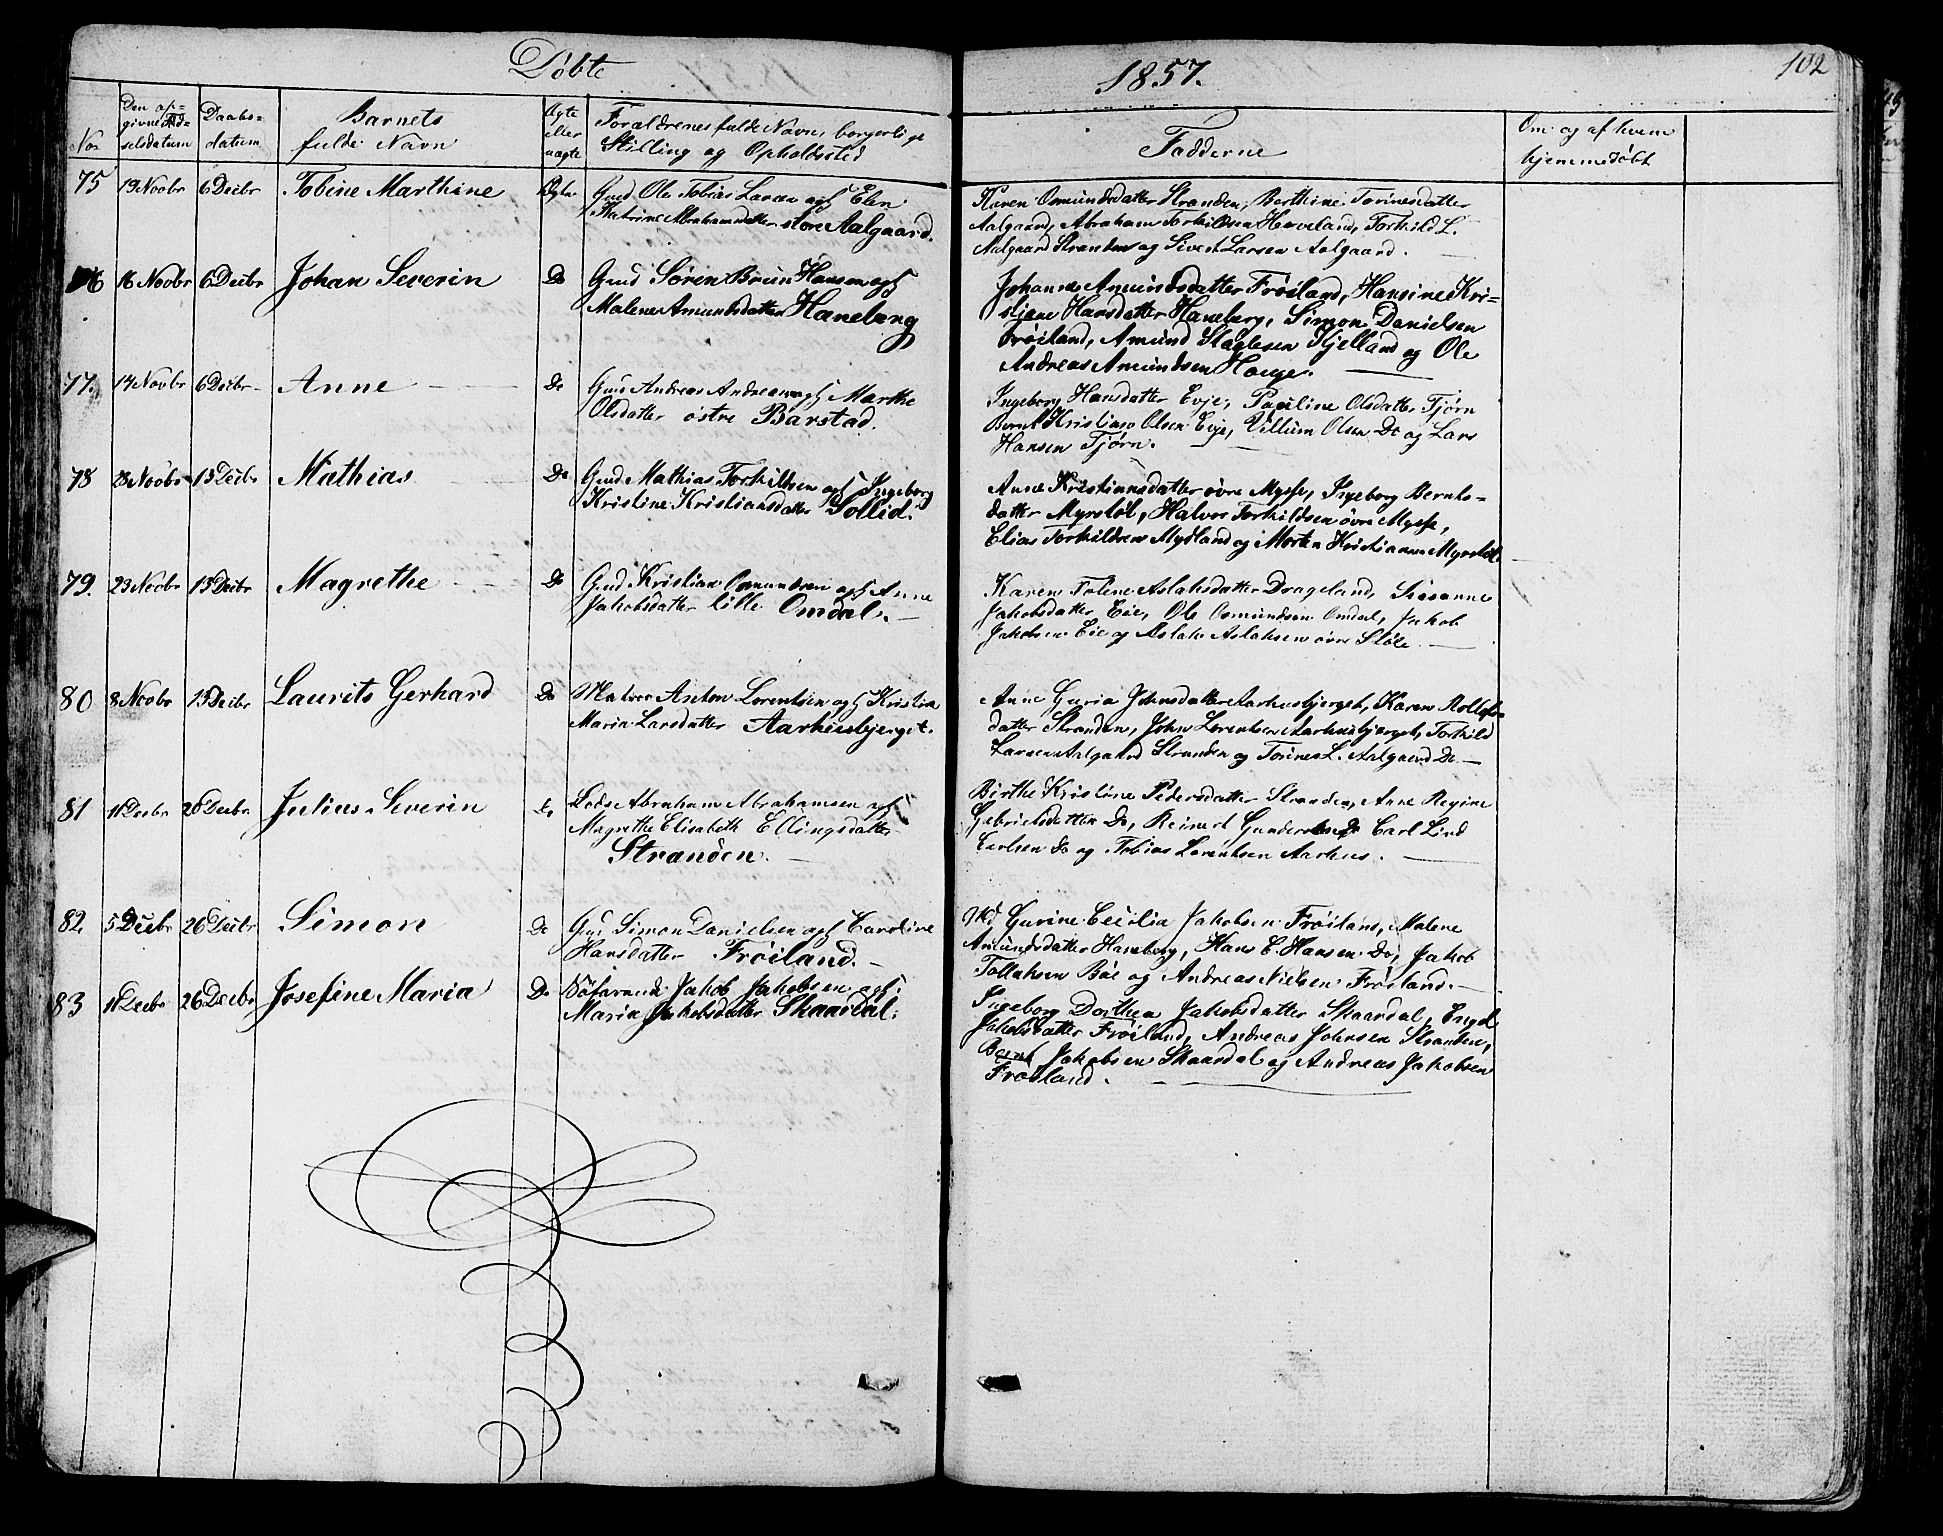 Döbte
1857.
102
No
Den opgivne Födselsdatum
Daabsdatum
Barnets fulde Navn
Ægte eller uægte
Forældrenes fulde Navn, borgerlige Stilling og Opholdssted
Fadderne
Om og af hvem hjemmedöbt
75 19 Novbr 6 Decbr Tobine Marthine Ægte Gmd Ole Tobias Larsen og H Elen
Katrine Abrahamsdatter store Aalgaard.
Karen Osmundsdatter Stranden, Berthine Törinesdatter
Aalgaard, Abraham Torkildsen Haveland, Torkild L.
Aalgaard Stranden og Sivert Larsen Aalgaard.
76 16 Novbr 6 Decbr Johan Severin Do Gmd Sören Bruun Hansen og H
Malene Amundsdatter Haneberg
Johanne Amundsdatter Fröiland, Hansine Kri-
stiane Hansdatter Haneberg, Simon Danielsen
Fröiland, Amund Slaglesen Kjelland og Ole
Andreas Amundsen Hauge.
77. 14 Novbr 6 Decbr Anne Do Gmd Andreas Andreasen og H Marthe
Olsdatter östre Barstad.
Ingeborg Hansdatter Evje, Pauline Olsdatter Tjörn
Bernt Kristinus Olsen Evje, Villum Olsen Do og Lars
Hansen Tjörn.
78 28 Novbr 13 Decbr Mathias Do Gmd Mathias Torkildsen og H Ingeborg
Kristine Kristiansdatter Sollid.
Anne Kristiansdatter övre Mysse, Ingeborg Bernts-
datter Myrstöl, Halvor Torkildsen övre Mysse,
Elias Torkildsen Mydland og Morten Kristiansen Myrstöl
79. 23 Novbr 13 Decbr Magrethe Do Gmd Kristian Osmundsen og H Anne
Jakobsdatter lille Omdal.
Karen Toline Aslaksdatter Drageland, Susanne
Jakobsdatter Eie, Ole Osmundsen Omdal, Jakob
Jakobsen Eie og Aslak Aslaksen övre Stöle.
80 8 Novbr 13 Decbr Laurits Gerhard Do Matros Anton Lorentsen og H Kristine
Maria Larsdatter Aarhusbjerget.
Anne Guria Johnsdatter Aarhusbjerget, Karen Rollefs-
datter Stranden, John Lorentsen Aarhusbjerget, Torkild
Larsen Aalgaard Stranden og Törines L. Aalgaard Do
81 11 Decbr 26 Decbr Julius Severin Do Lods Abraham Abrahamsen og H
Magrethe Elisabeth Ellingsdatter
Stranden.
Birthe Kristine Pedersdatter Stranden, Anne Regine
Gabrielsdatter Do, Reinert Gundersen Do Carl Lind
Carlsen Do og Tobias Lorentsen Aarhus.
82 5 Decbr 26 Decbr Simon Do Gmd Simon Danielsen og H Caroline
Hansdatter Fröiland.
Md Gurine Cecilia Jakobsen Fröiland, Malene
Amundsdatter Haneberg, Hans C. Hansen Do, Jakob
Tollaksen Böe og Andreas Nielsen Fröiland.
83 11 Decbr 26 Decbr Josefine Maria Do Söfarende Jakob Jakobsen og H
Maria Jakobsdatter Skaardal.
Ingeborg Dorthea Jakobsdatter Skaardal, Engel
Jakobsdatter Fröiland, Andreas Johnsen Stranden,
Bernt Jakobsen Skaardal og Andreas Jakobsen
Fröiland.